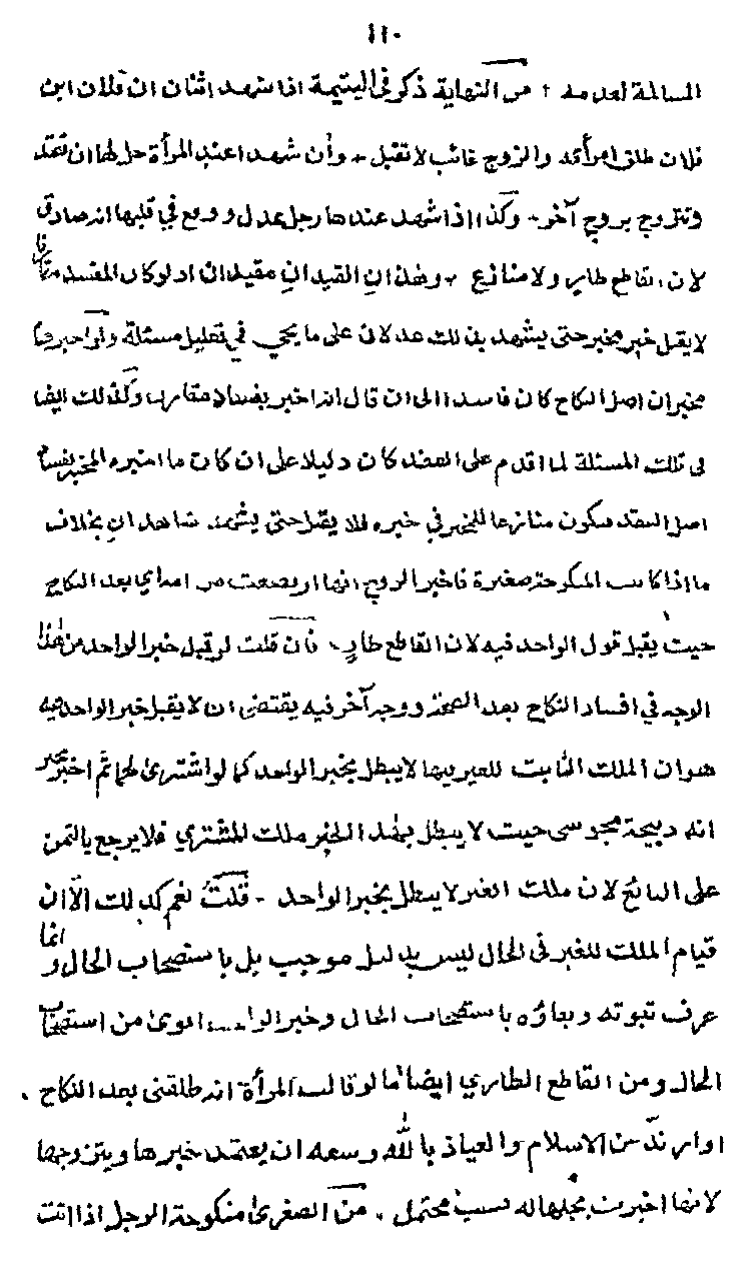 ١١٠
المسالمة لعدمه + من النهاية ذكر فى اليتيمة اذا شهد اثنان ان فلان ابن
فلان طلق امرأته والزوج غائب لا تقبل + وأن شهدا عند المرأة حل لها ان تعتد
وتتزوج بزوج آخر - وكذا اذا شهد عندها رجل عدل ووقع في قلبها انه صادق
لان القاطع طار ولا منازع + وهذان القيدان مفيدان اذ لو كان المفسد مقارنا
لا يقبل خبر مخبر حتى يشهد بذلك عدلان على ما يجي في تعليل مسئلة ولو اخبرها
مخبر ان اصل النكاح كان فاسدا الى ان قال انه اخبر بفساد مقارن وكذلك ايضا
فى تلك المسئلة لما اقدم على العقد كان دليلا على ان كان ما اخبره المخبر بفساد
اصل العقد فيكون منازعا للمخبر في خبره فلا يقبل حتى يشهد شاهدان بخلاف
ما اذا كانت المنكوحة صغيرة فاخبر الزوج انها ارتضعت من امه اي بعد النكاح
حيث يقبل قول الواحد فيه لان القاطع طار - فأن قلت لو قبل خبر الواحد من هذا
الوجه في افساد النكاح بعد الصحة ووجه آخر فيه يقتضى ان لا يقبل خبر الواحد فيه
هو ان الملك الثابت للغير فيها لا يبطل بخبر الواحد كما لو اشترى لحما ثم اخبر مخبر
انه ذبيحة مجوسى حيث لا يبطل بهذا الخبر ملك المشتري فلا يرجع بالثمن
على البائع لان ملك الغير لا يبطل بخبر الواحد - قلت نعم كذلك الا ان
قيام الملك للغير فى الحال ليس بدليل موجب بل باستصحاب الحال وانما
عرف ثبوته وبقاؤه باستصحاب الحال وخبر الواحد اقوى من استصحاب
الحال ومن القاطع الطاري ايضا ما لو قالت المرأة انه طلقنى بعد النكاح .
او ارتد عن الاسلام والعياذ بالله وسعه ان يعتمد خبرها ويتزوجها
لانها اخبرت بحلها له بسبب محتمل . من الصغرى منكوحة الرجل اذا اتت